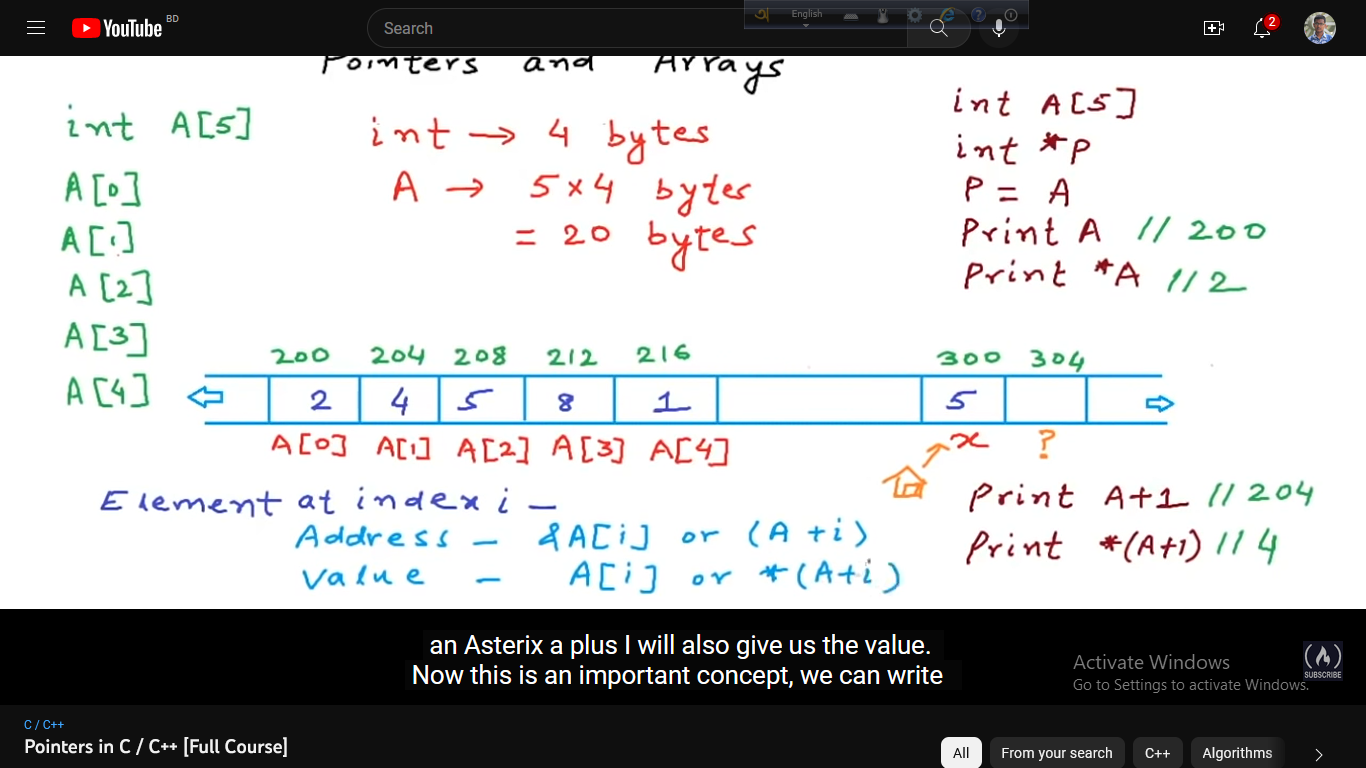 YouTube BD
Search
English
2
Pointers and Arrays
int A[5]
A[0]
A[1]
A[2]
A[3]
A[4]
int → 4 bytes
A → 5 × 4 bytes
= 20 bytes
int A[5]
int *P
P = A
Print A // 200
Print *A // 2
200 204 208 212 216 300 304
2 4 5 8 1 5
A[0] A[1] A[2] A[3] A[4] x ?
Element at index i –
Address – &A[i] or (A+i)
Value – A[i] or *(A+i)
Print A+1 // 204
Print *(A+1) // 4
an Asterix a plus I will also give us the value.
Now this is an important concept, we can write
Activate Windows
Go to Settings to activate Windows.
SUBSCRIBE
C / C++
Pointers in C / C++ [Full Course]
All From your search C++ Algorithms